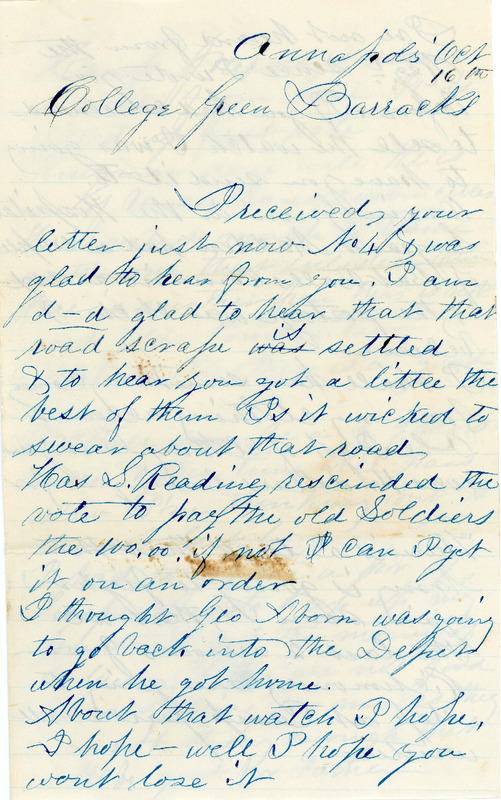 Annapolis Oct
16th
College Green Barracks
I received your
letter just now No 4 & was
glad to hear from you. I am
d—d glad to hear that that
road scrape was is settled
& to hear you got a little the
best of them Is it wicked to
swear about that road
Has S. Reading rescinded the
vote to pay the old Soldiers
the 100.00. if not I can I get
it on an order
I thought Geo Aborn was going
to go back into the Depot
when he got home.
About that watch I hope,
I hope — well I hope you
wont lose it